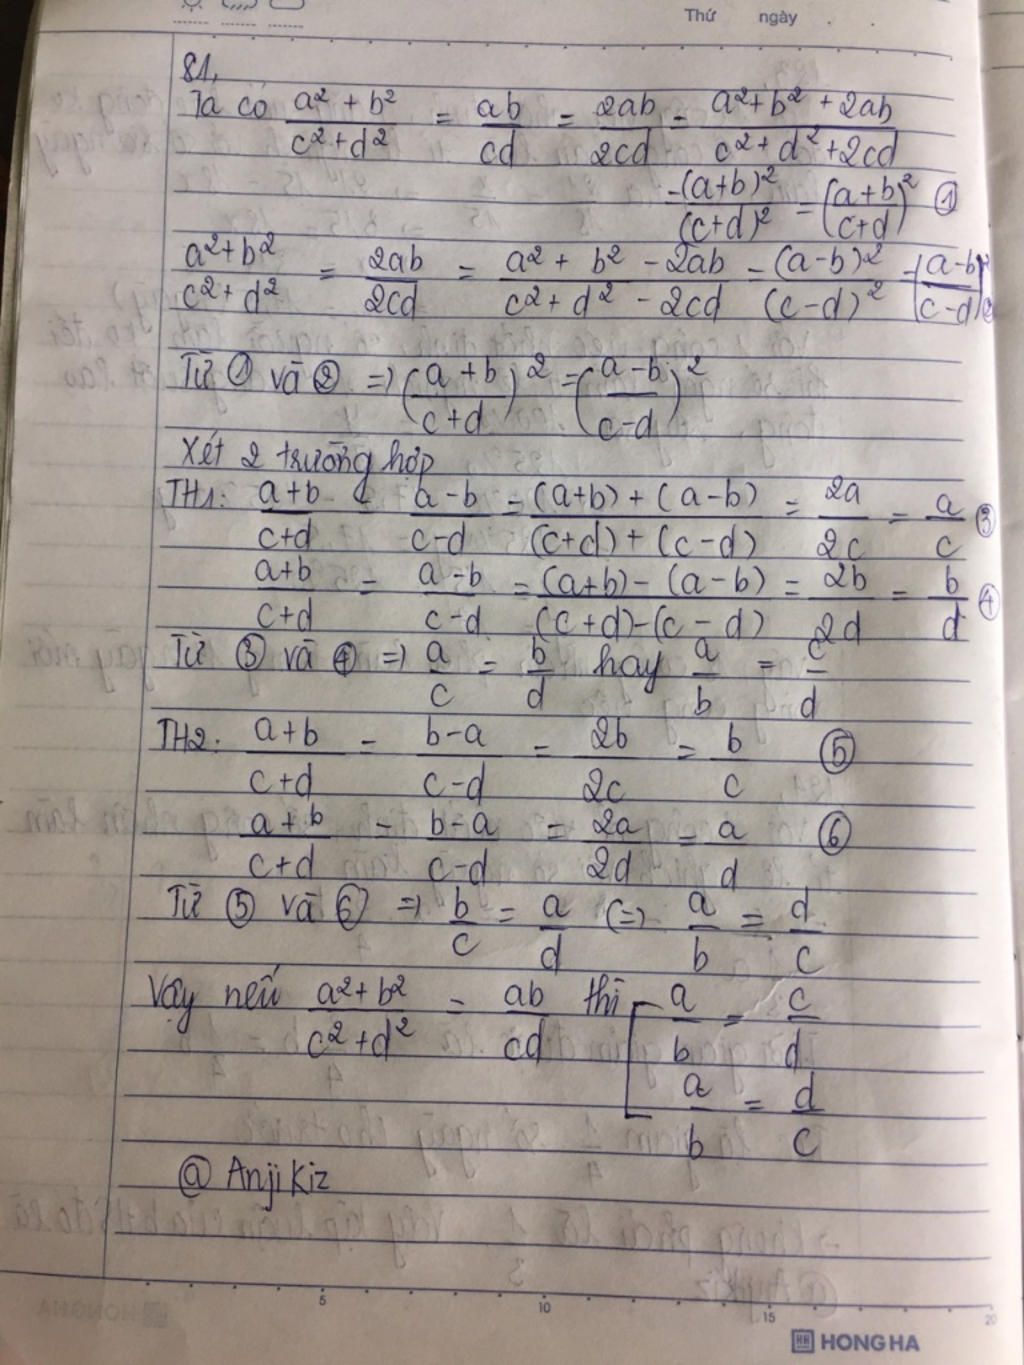 Thứ ngày . .
81,
Ta có a² + b² / c² + d² = ab / cd = 2ab / 2cd = a² + b² + 2ab / c² + d² + 2cd
= (a+b)² / (c+d)² = (a+b / c+d)² ①
a² + b² / c² + d² = 2ab / 2cd = a² + b² - 2ab / c² + d² - 2cd = (a-b)² / (c-d)² = (a-b / c-d)² ②
Từ ① và ② => (a+b / c+d)² = (a-b / c-d)²
Xét 2 trường hợp
TH1: a+b / c+d = a-b / c-d = (a+b) + (a-b) / (c+d) + (c-d) = 2a / 2c = a / c ③
a+b / c+d = a-b / c-d = (a+b) - (a-b) / (c+d) - (c-d) = 2b / 2d = b / d ④
Từ ③ và ④ => a / c = b / d hay a / b = c / d
TH2: a+b / c+d = b-a / c-d = 2b / 2c = b / c ⑤
a+b / c+d = b-a / c-d = 2a / 2d = a / d ⑥
Từ ⑤ và ⑥ => b / c = a / d (=) a / b = d / c
Vậy nếu a² + b² / c² + d² = ab / cd thì [ a / b = c / d
a / b = d / c
@ Anji Kiz
5 10 15 20
HH HONG HA